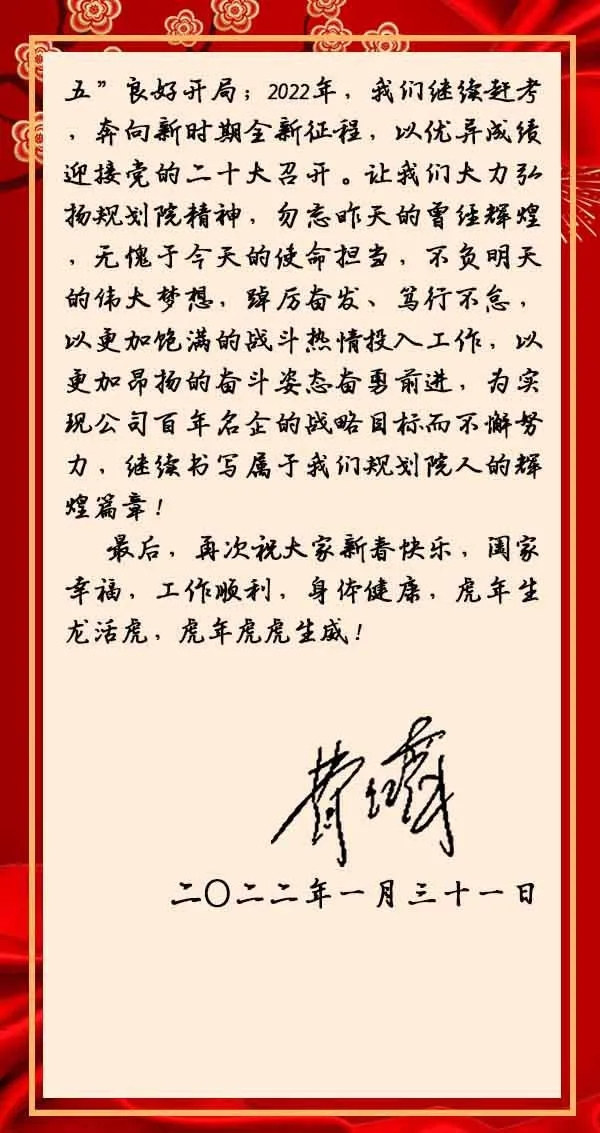 五”良好开局；2022年，我们继续赶考
，奔向新时期全新征程，以优异成绩
迎接党的二十大召开。让我们大力弘
扬规划院精神，勿忘昨天的曾经辉煌
，无愧于今天的使命担当，不负明天
的伟大梦想，踔厉奋发、笃行不怠，
以更加饱满的战斗热情投入工作，以
更加昂扬的奋斗姿态奋勇前进，为实
现公司百年名企的战略目标而不懈努
力，继续书写属于我们规划院人的辉
煌篇章！
最后，再次祝大家新春快乐，阖家
幸福，工作顺利，身体健康，虎年生
龙活虎，虎年虎虎生威！
二〇二二年一月三十一日